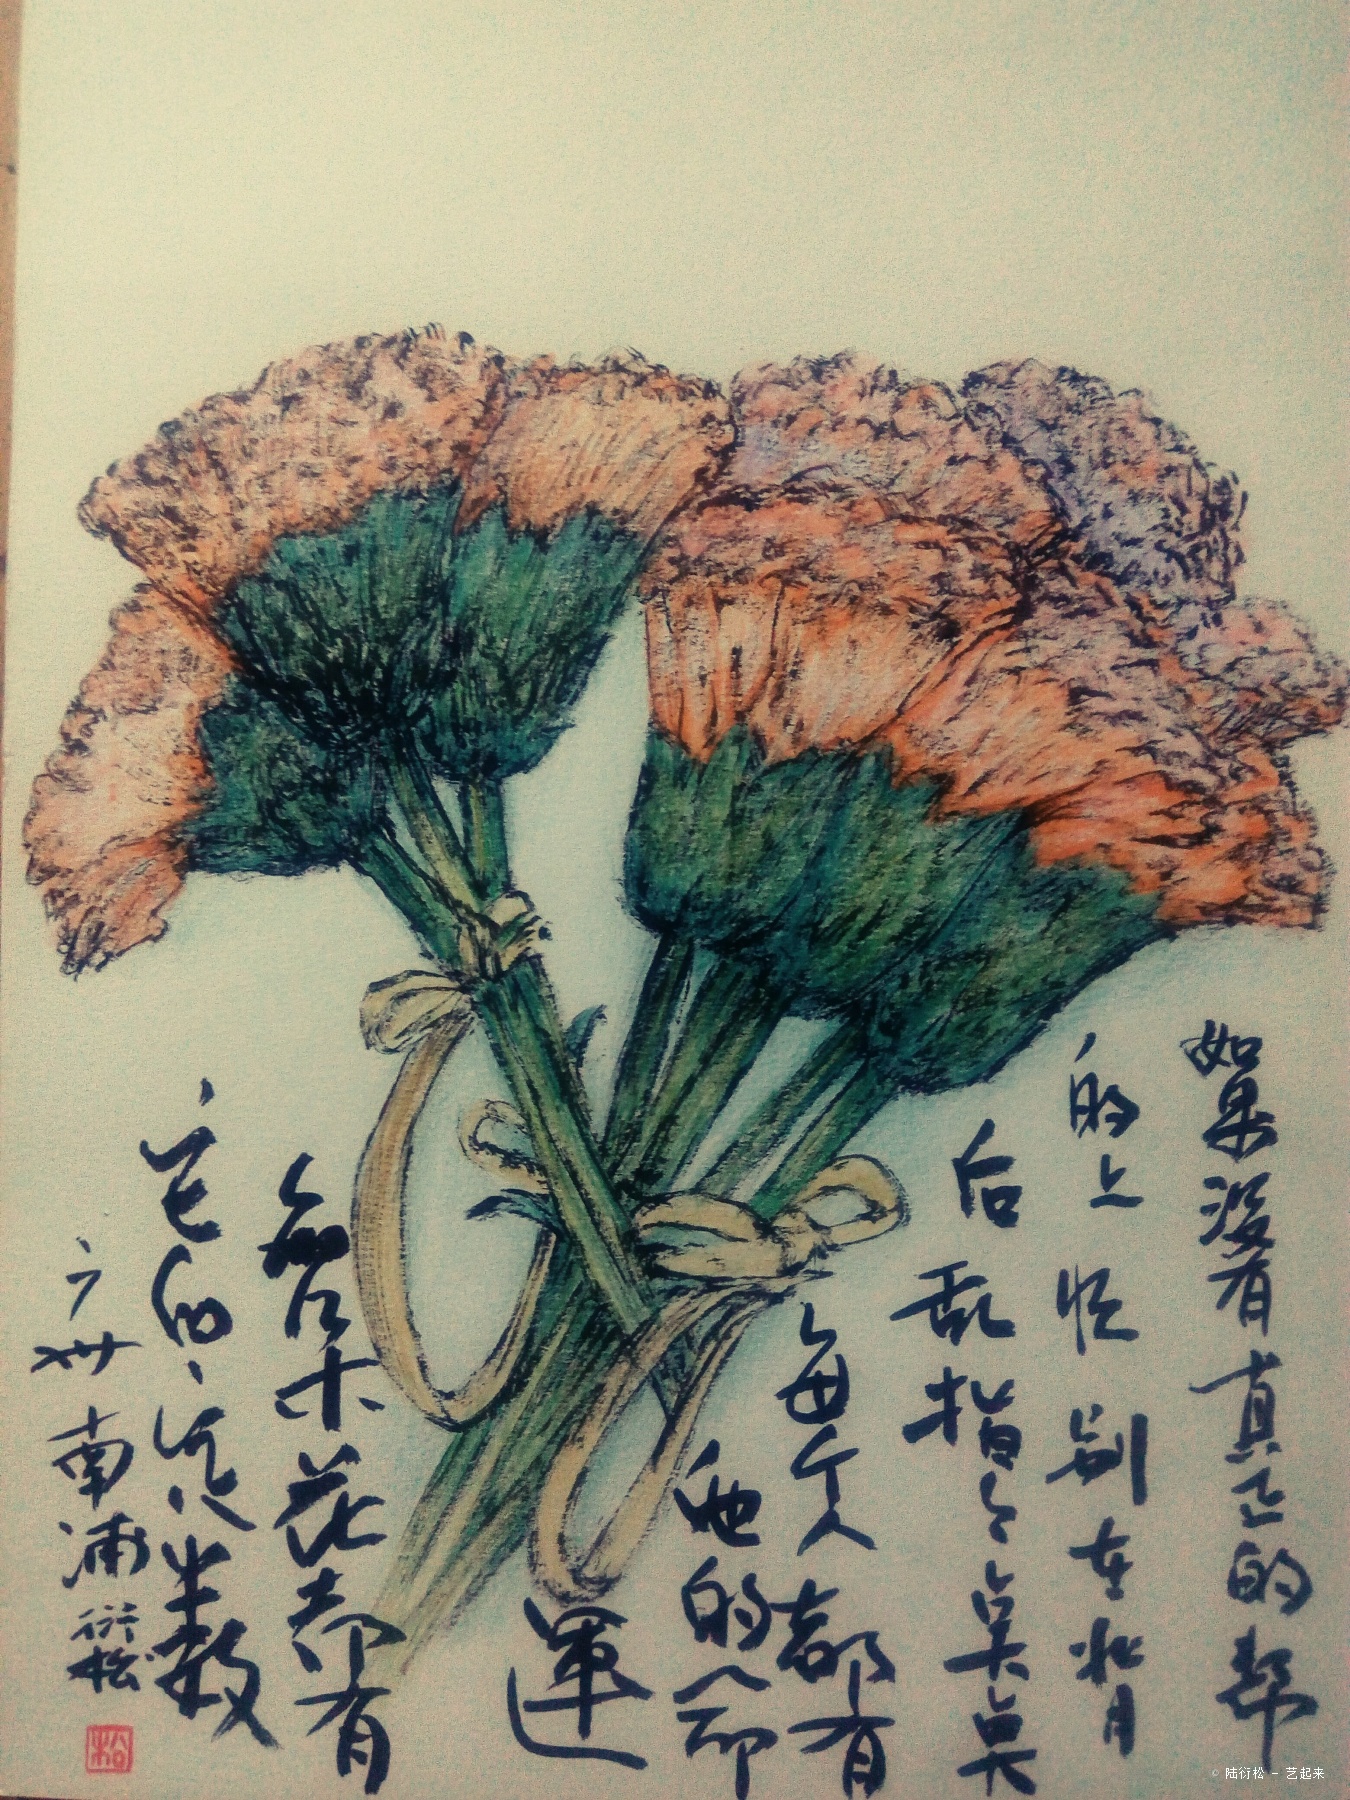 如果没有真正的帮
的上忙别在背
后乱指指点点
每个人都有
她的命
运
每朵花都有
它的定数
广州南浦衍松
松
© 陆衍松 - 艺起来